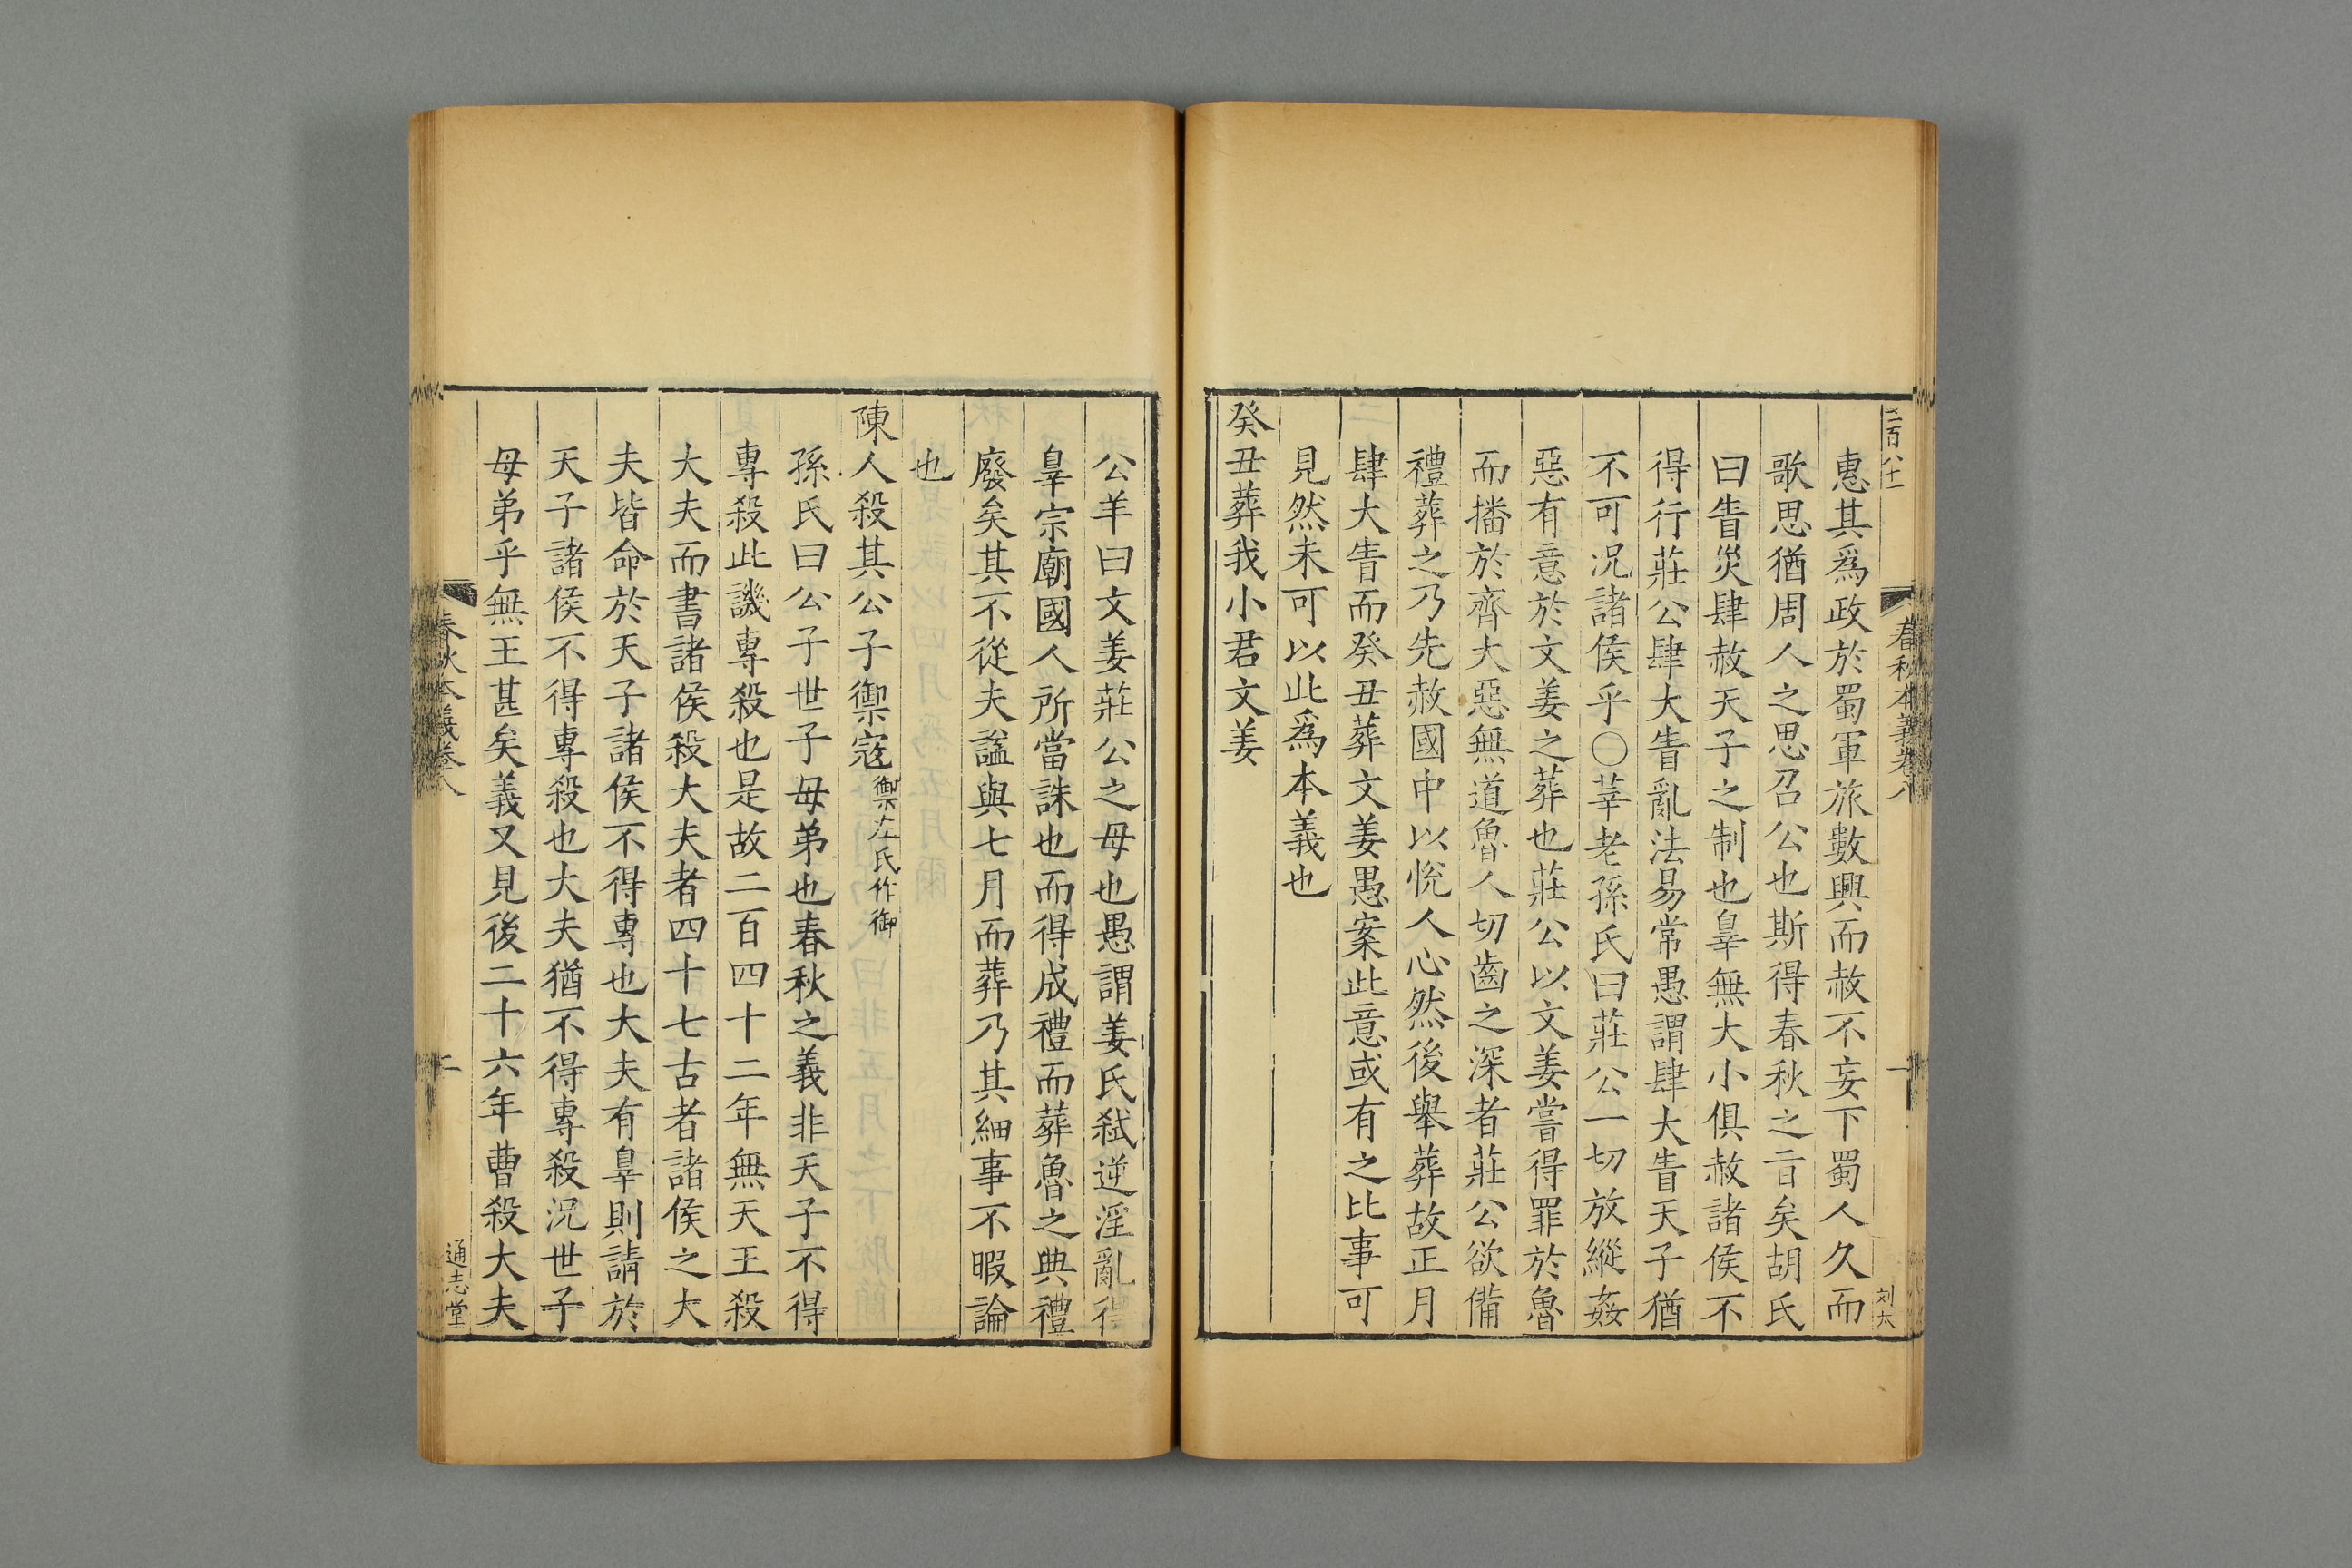 二百八十一
春秋本義卷八
一
刘太
惠其爲政於蜀軍旅數興而赦不妄下蜀人久而
歌思猶周人之思召公也斯得春秋之㫖矣胡氏
曰眚災肆赦天子之制也辠無大小俱赦諸侯不
得行莊公肆大眚亂法易常愚謂肆大眚天子猶
不可況諸侯乎〇莘老孫氏曰莊公一切放縱姦
惡有意於文姜之葬也莊公以文姜嘗得罪於魯
而播於齊大惡無道魯人切齒之深者莊公欲備
禮葬之乃先赦國中以悅人心然後舉葬故正月
肆大眚而癸丑葬文姜愚案此意或有之比事可
見然未可以此爲本義也
癸丑葬我小君文姜
公羊曰文姜莊公之母也愚謂姜氏弑逆淫亂得
辠宗廟國人所當誅也而得成禮而葬魯之典禮
廢矣其不從夫謚與七月而葬乃其細事不暇論
也
陳人殺其公子禦寇禦左氏作御
孫氏曰公子世子母弟也春秋之義非天子不得
專殺此譏專殺也是故二百四十二年無天王殺
大夫而書諸侯殺大夫者四十七古者諸侯之大
夫皆命於天子諸侯不得專也大夫有辠則請於
天子諸侯不得專殺也大夫猶不得專殺況世子
母弟乎無王甚矣義又見後二十六年曹殺大夫
春秋本義卷八
通志堂